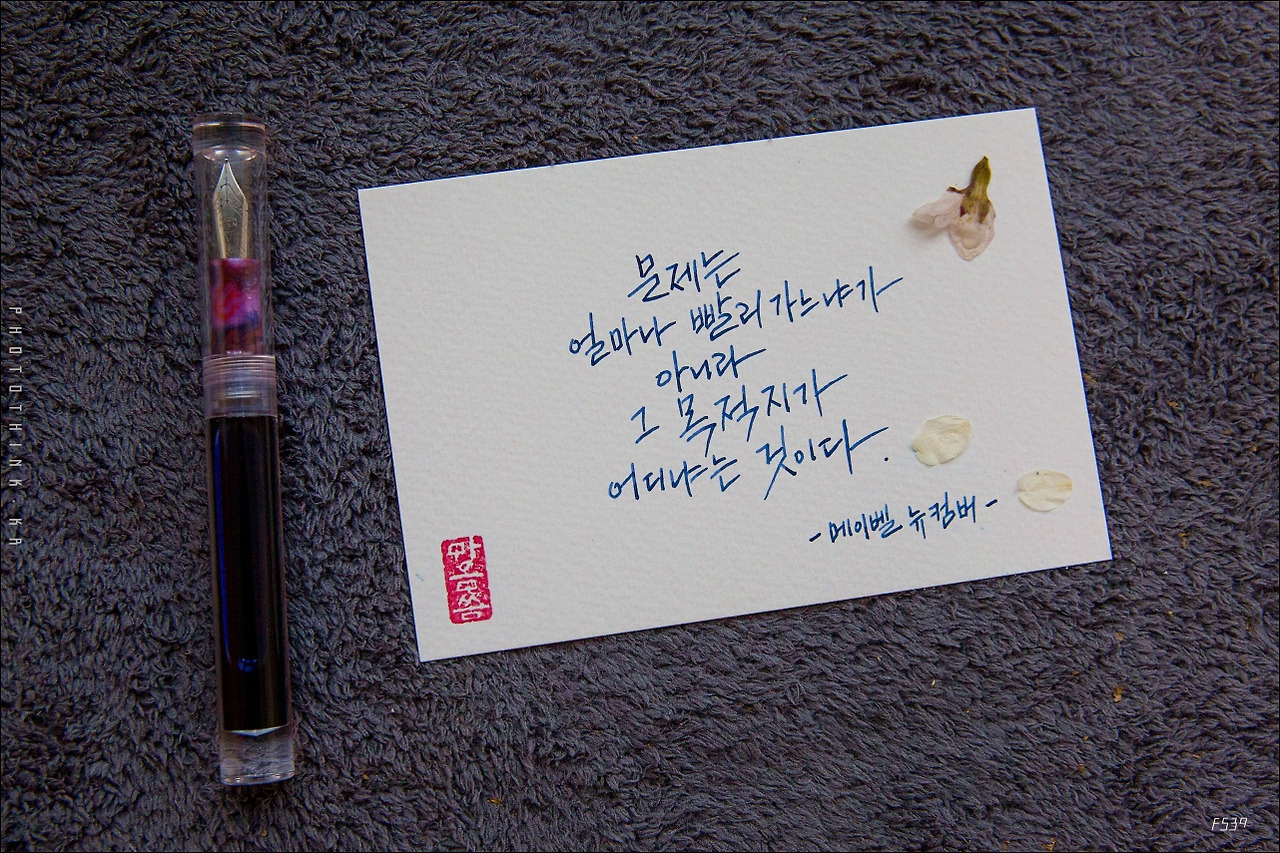 문제는
얼마나 빨리 가느냐가
아니라
그 목적지가
어디냐는 것이다.
- 메이벨 뉴컴버 -
PHOTOTHINK-KA
FS39